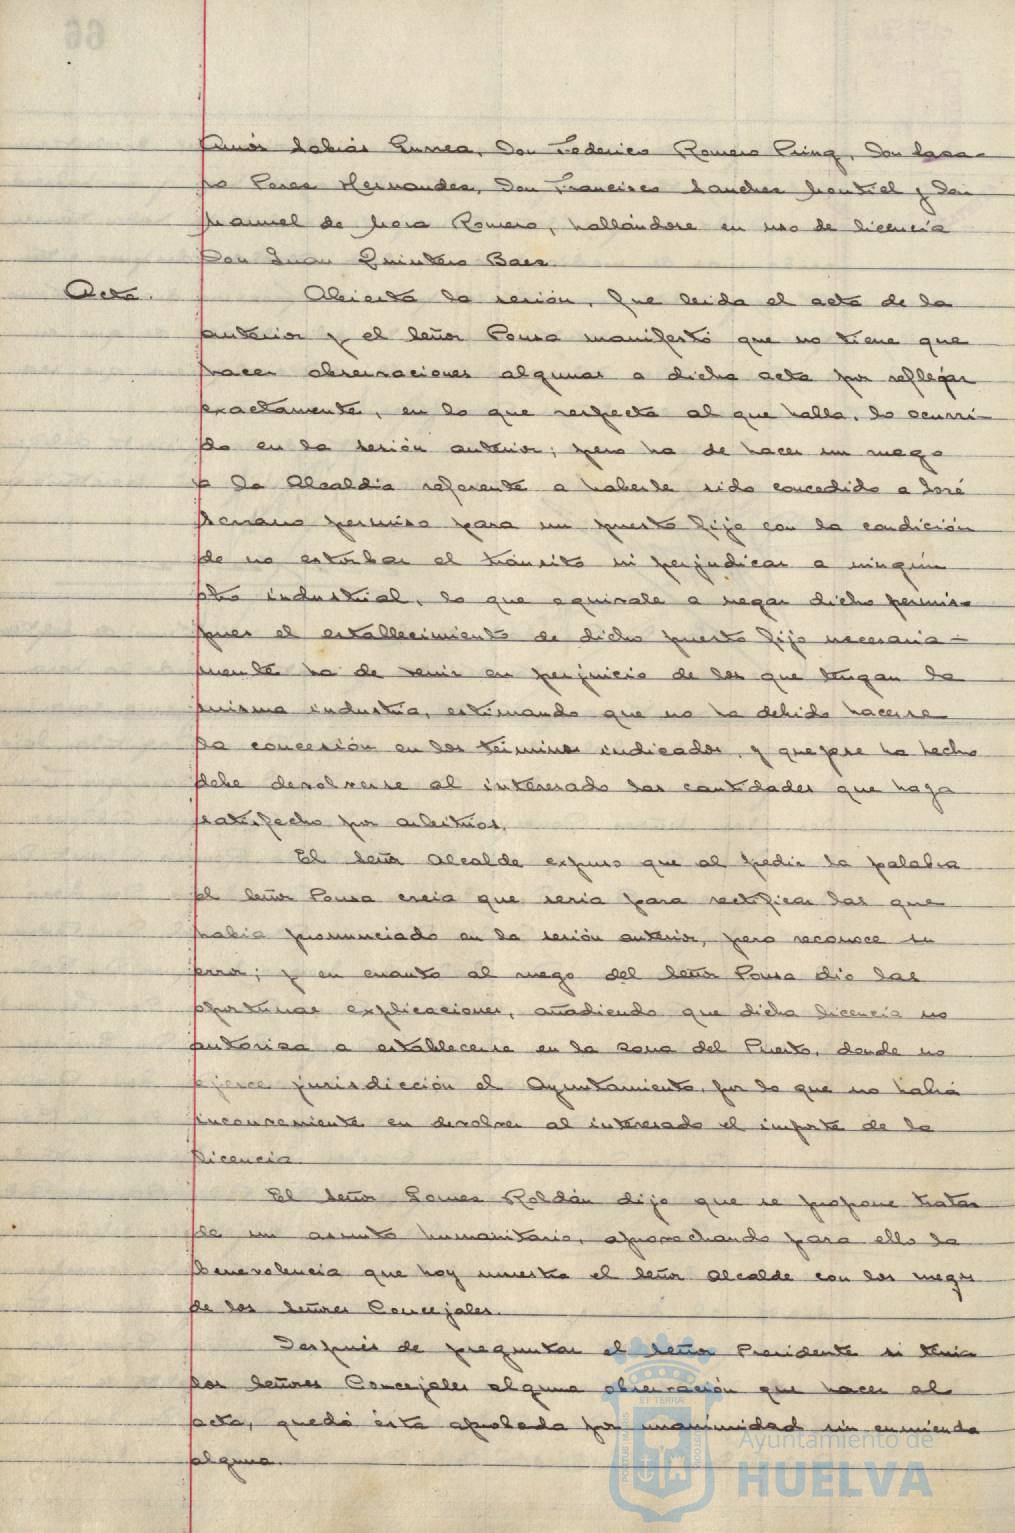 Amós Sabrás Gurrea, Don Federico Romero Pring, Don Lasa-
ro Peres Hernandes, Don Francisco Sanches Montiel y Don
Manuel de Mora Romero, hallándose en uso de licencia
Don Juan Quintero Baes.
Acta.
Abierta la sesión, fue leida el acta de la
anterior y el Señor Ponsa manifestó que no tiene que
hacer observaciones algunas a dicha acta por reflejar
exactamente, en lo que respecta al que habla, lo ocurri-
do en la sesión anterior; pero ha de hacer un ruego
a la Alcaldia referente a haberle sido concedido a José
Serrano permiso para un puesto fijo con la condición
de no estorbar el tránsito ni perjudicar a ningún
otro industrial, lo que equivale a negar dicho permiso
pues el establecimiento de dicho puesto fijo necesaria-
mente ha de venir en perjuicio de los que tengan la
misma industria, estimando que no ha debido hacerse
la concesión en los términos indicados, y que pese ha hecho
debe devolverse al interesado las cantidades que haya
satisfecho por arbitrios.
El señor Alcalde expuso que al pedir la palabra
el Señor Ponsa creia que seria para rectificar las que
habia pronunciado en la sesión anterior, pero reconoce su
error; y en cuanto al ruego del Señor Ponsa dio las
oportunas explicaciones, añadiendo que dicha licencia no
autorisa a establecerse en la sona del Puerto, donde no
ejerce jurisdicción el Ayuntamiento, por lo que no habrá
inconveniente en devolver al interesado el importe de la
licencia.
El Señor Gomes Roldán dijo que se propone tratar
de un asunto humanitario, aprovechando para ello la
benevolencia que hoy muestra el Señor Alcalde con los ruegos
de los Señores Concejales.
Después de preguntar el Señor Presidente si tenia
los Señores Concejales alguna observación que hacer al
acta, quedó ésta aprobada por unanimidad sin enmienda
alguna.
Ayuntamiento de
HUELVA